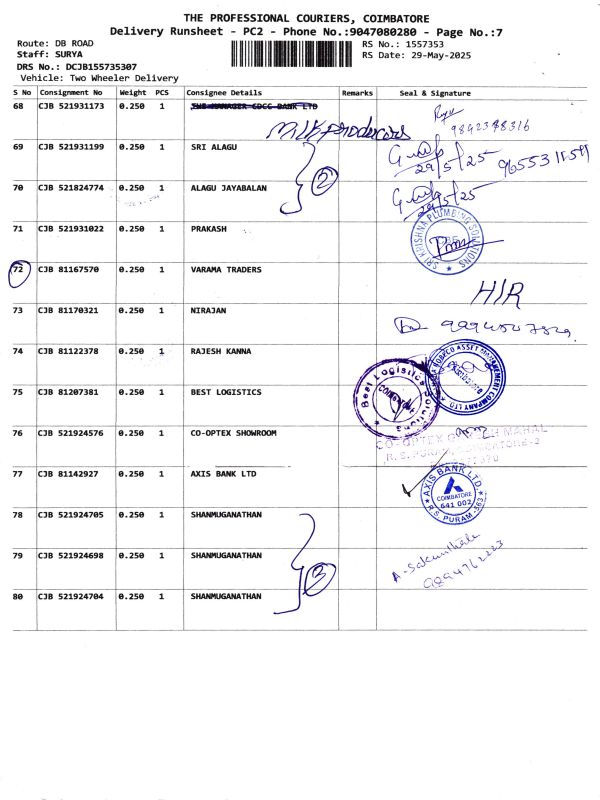 THE PROFESSIONAL COURIERS, COIMBATORE
Delivery Runsheet - PC2 - Phone No.:9047080280 - Page No.:7
Route: DB ROAD
Staff: SURYA
DRS No.: DCJB155735307
Vehicle: Two Wheeler Delivery
RS No.: 1557353
RS Date: 29-May-2025
S No Consignment No Weight PCS Consignee Details Remarks Seal & Signature
68 CJB 521931173 0.250 1 THE MANAGER CDCC BANK LTD
Milk Producers
9842348316
69 CJB 521931199 0.250 1 SRI ALAGU
29/5/25 9655311599
2
70 CJB 521824774 0.250 1 ALAGU JAYABALAN
29/5/25
71 CJB 521931022 0.250 1 PRAKASH
SRI KRISHNA PLUMBING SOLUTIONS
72 CJB 81167570 0.250 1 VARAMA TRADERS
H/R
73 CJB 81170321 0.250 1 NIRAJAN
74 CJB 81122378 0.250 1 RAJESH KANNA
ASSET MANAGEMENT COMPANY LTD
75 CJB 81207381 0.250 1 BEST LOGISTICS
Best Logistics Solutions
Coimbatore
76 CJB 521924576 0.250 1 CO-OPTEX SHOWROOM
CO-OPTEX
77 CJB 81142927 0.250 1 AXIS BANK LTD
AXIS BANK LTD.
COIMBATORE
641 002
R.S. PURAM-563
78 CJB 521924705 0.250 1 SHANMUGANATHAN
79 CJB 521924698 0.250 1 SHANMUGANATHAN
3
A-Sakunthala
9894762223
80 CJB 521924704 0.250 1 SHANMUGANATHAN